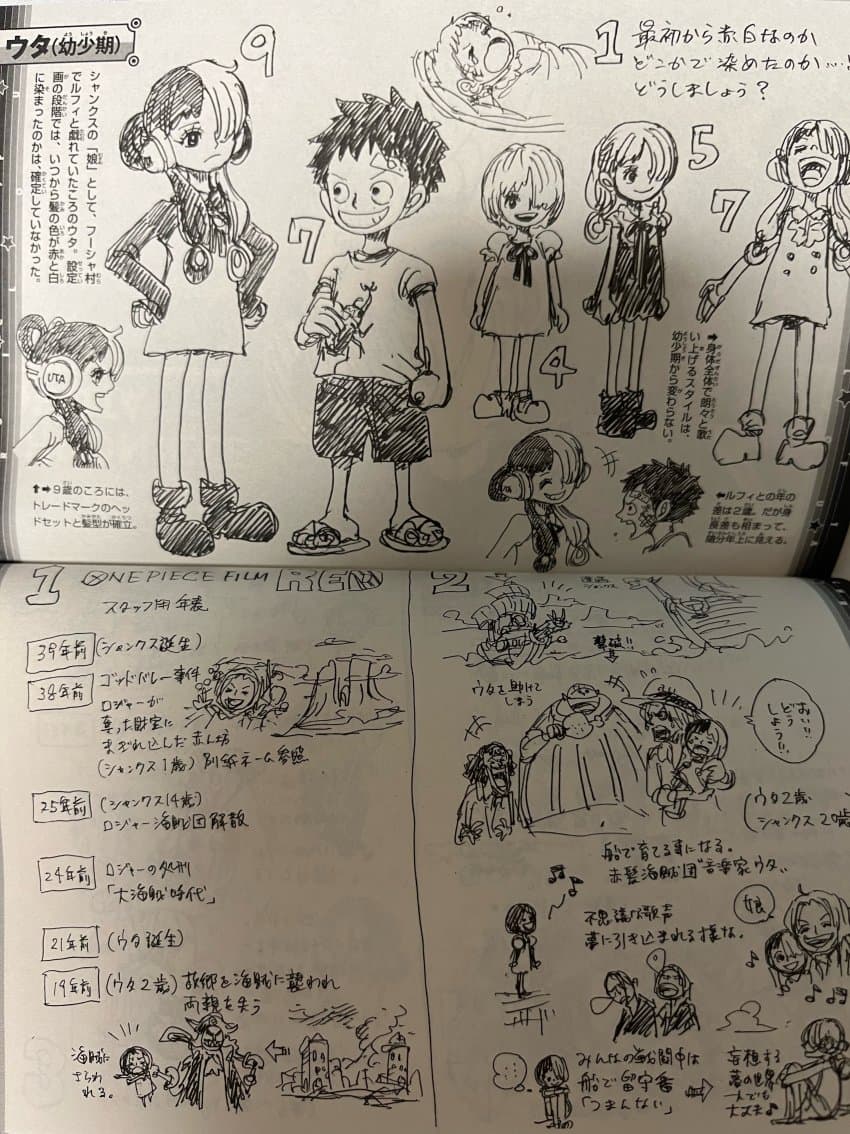 ウタ(幼少期)
シャンクスの「娘」として、フーシャ村
でルフィと戯れていたころのウタ。設定
画の段階では、いつから髪の色が赤と白
に染まったのかは、確定していなかった。
9
7
4
5
7
1
最初から赤白なのか
どこかで染めたのか…!
どうしましょう?
UTA
➡身体全体で朗々と歌
い上げるスタイルは、
幼少期から変わらない。
⬆➡9歳のころには、
トレードマークのヘッ
ドセットと髪型が確立。
⬅ルフィとの年の
差は2歳。だが身
長差も相まって、
随分年上に見える。
1 ONE PIECE FILM RED
スタッフ用年表
39年前 (シャンクス誕生)
38年前 ゴッドバレー事件
ロジャーが
奪った財宝に
まぎれ込んだ赤ん坊
(シャンクス1歳) 別紙ネーム参照
25年前 (シャンクス14歳)
ロジャー海賊団解散
24年前 ロジャーの処刑
「大海賊時代」
21年前 (ウタ誕生)
19年前 (ウタ2歳) 故郷を海賊に襲われ
両親を失う
海賊に
さらわ
れる。
2
撃破!!
ウタを助けて
しまう
おい!!
どう
しよう!!
(ウタ2歳
シャンクス20歳
船で育てる事になる。
赤髪海賊団"音楽家ウタ"
不思議な歌声
夢に引き込まれる様な。
娘
みんなの留守中は
船で留守番
「つまんない」
妄想する
夢の世界
一人でも
大丈夫♪